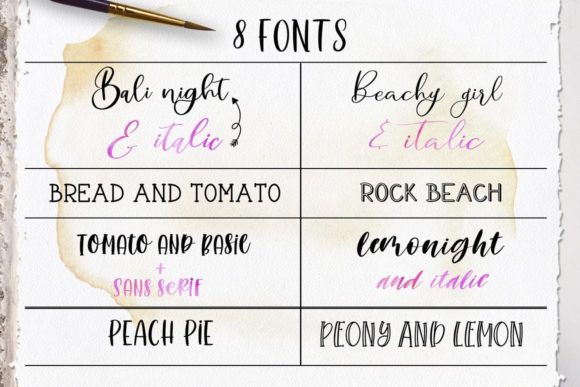 8 FONTS
Bali night
& italic
Beachy girl
& italic
BREAD AND TOMATO
ROCK BEACH
TOMATO AND BASIL
+
SANS SERIF
lemonight
and italic
PEACH PIE
PEONY AND LEMON